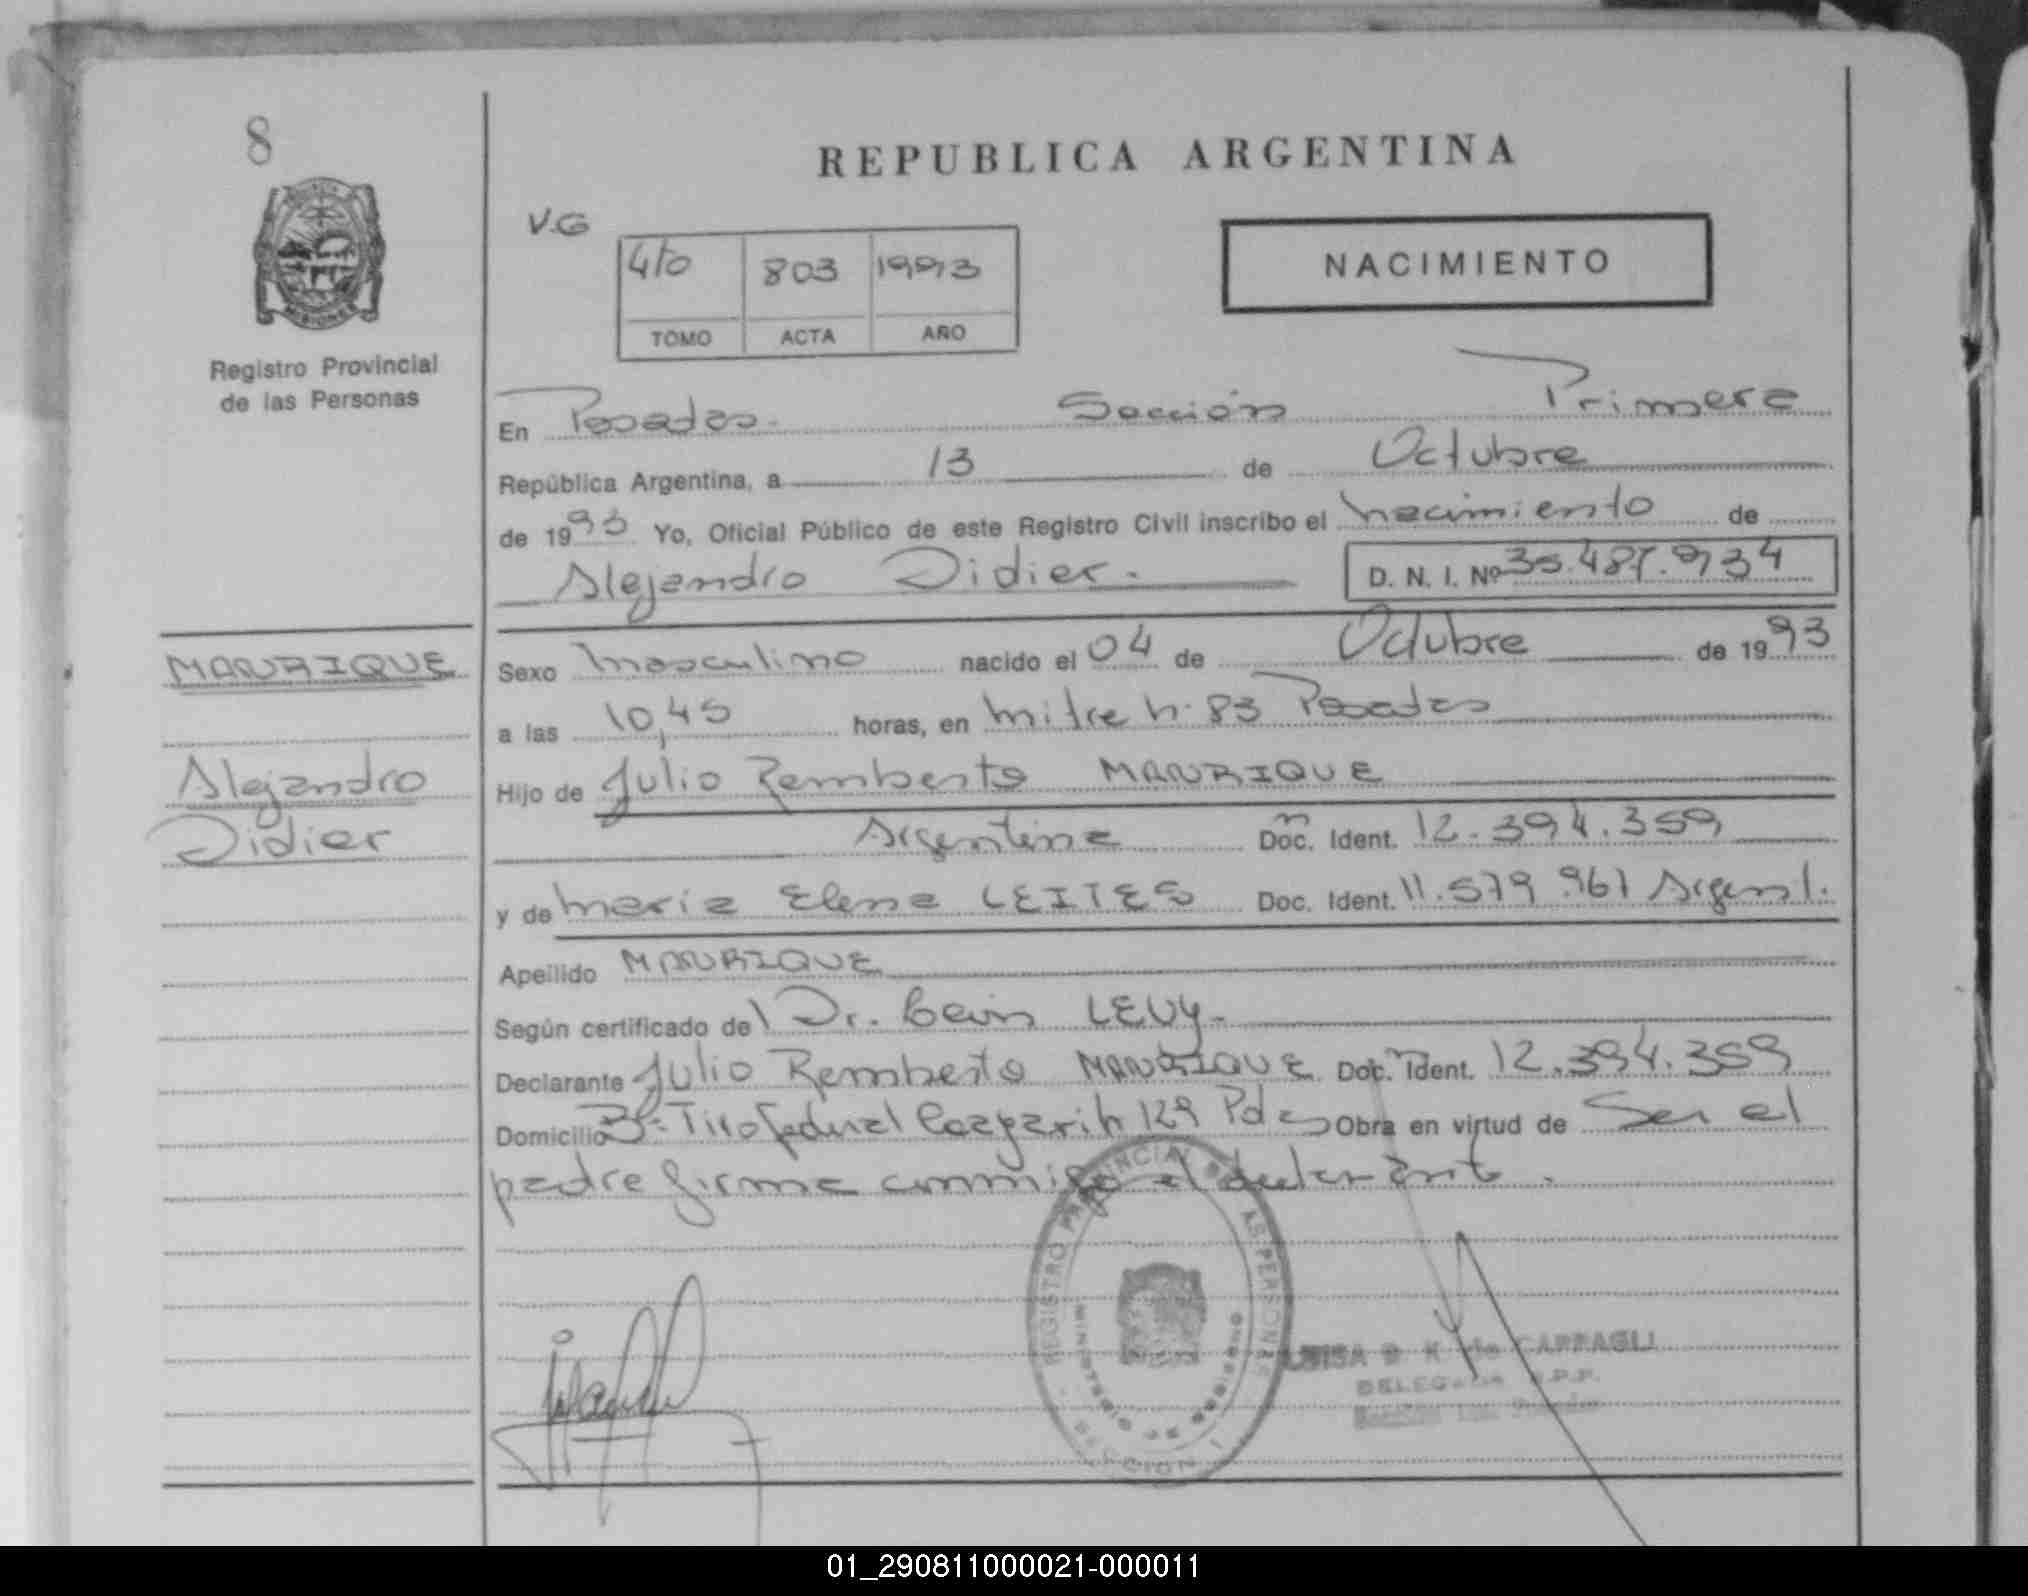 8
REPUBLICA ARGENTINA
V.G
4to 803 1993
TOMO ACTA AÑO
NACIMIENTO
MISIONES
Registro Provincial
de las Personas
En Posadas. Sección Primera
República Argentina, a 13 de Octubre
de 1993 Yo, Oficial Público de este Registro Civil inscribo el nacimiento de
Alejandro Didier. D. N. I. Nº 35.487.934
MANRIQUE
Alejandro
Didier
Sexo masculino nacido el 04 de Octubre de 1993
a las 10,45 horas, en Mitre n. 83 Posadas
Hijo de Julio Remberto MANRIQUE
Argentina Doc. Ident. 12.394.359
y de Maria Elena LEITES Doc. Ident. 11.579.961 Argent.
Apellido MANRIQUE
Según certificado del Dr. LEVY.
Declarante Julio Remberto MANRIQUE Doc. Ident. 12.394.359
Domicilio Bº Tiro federal 129 Pdas Obra en virtud de Ser el
padre firma conmigo el declarante.
REGISTRO PROVINCIAL DE LAS PERSONAS
MINISTERIO DE GOBIERNO
SECCION 1
LUISA D. K. de CAPPAGLI
DELEGADA R.P.P.
01_290811000021-000011